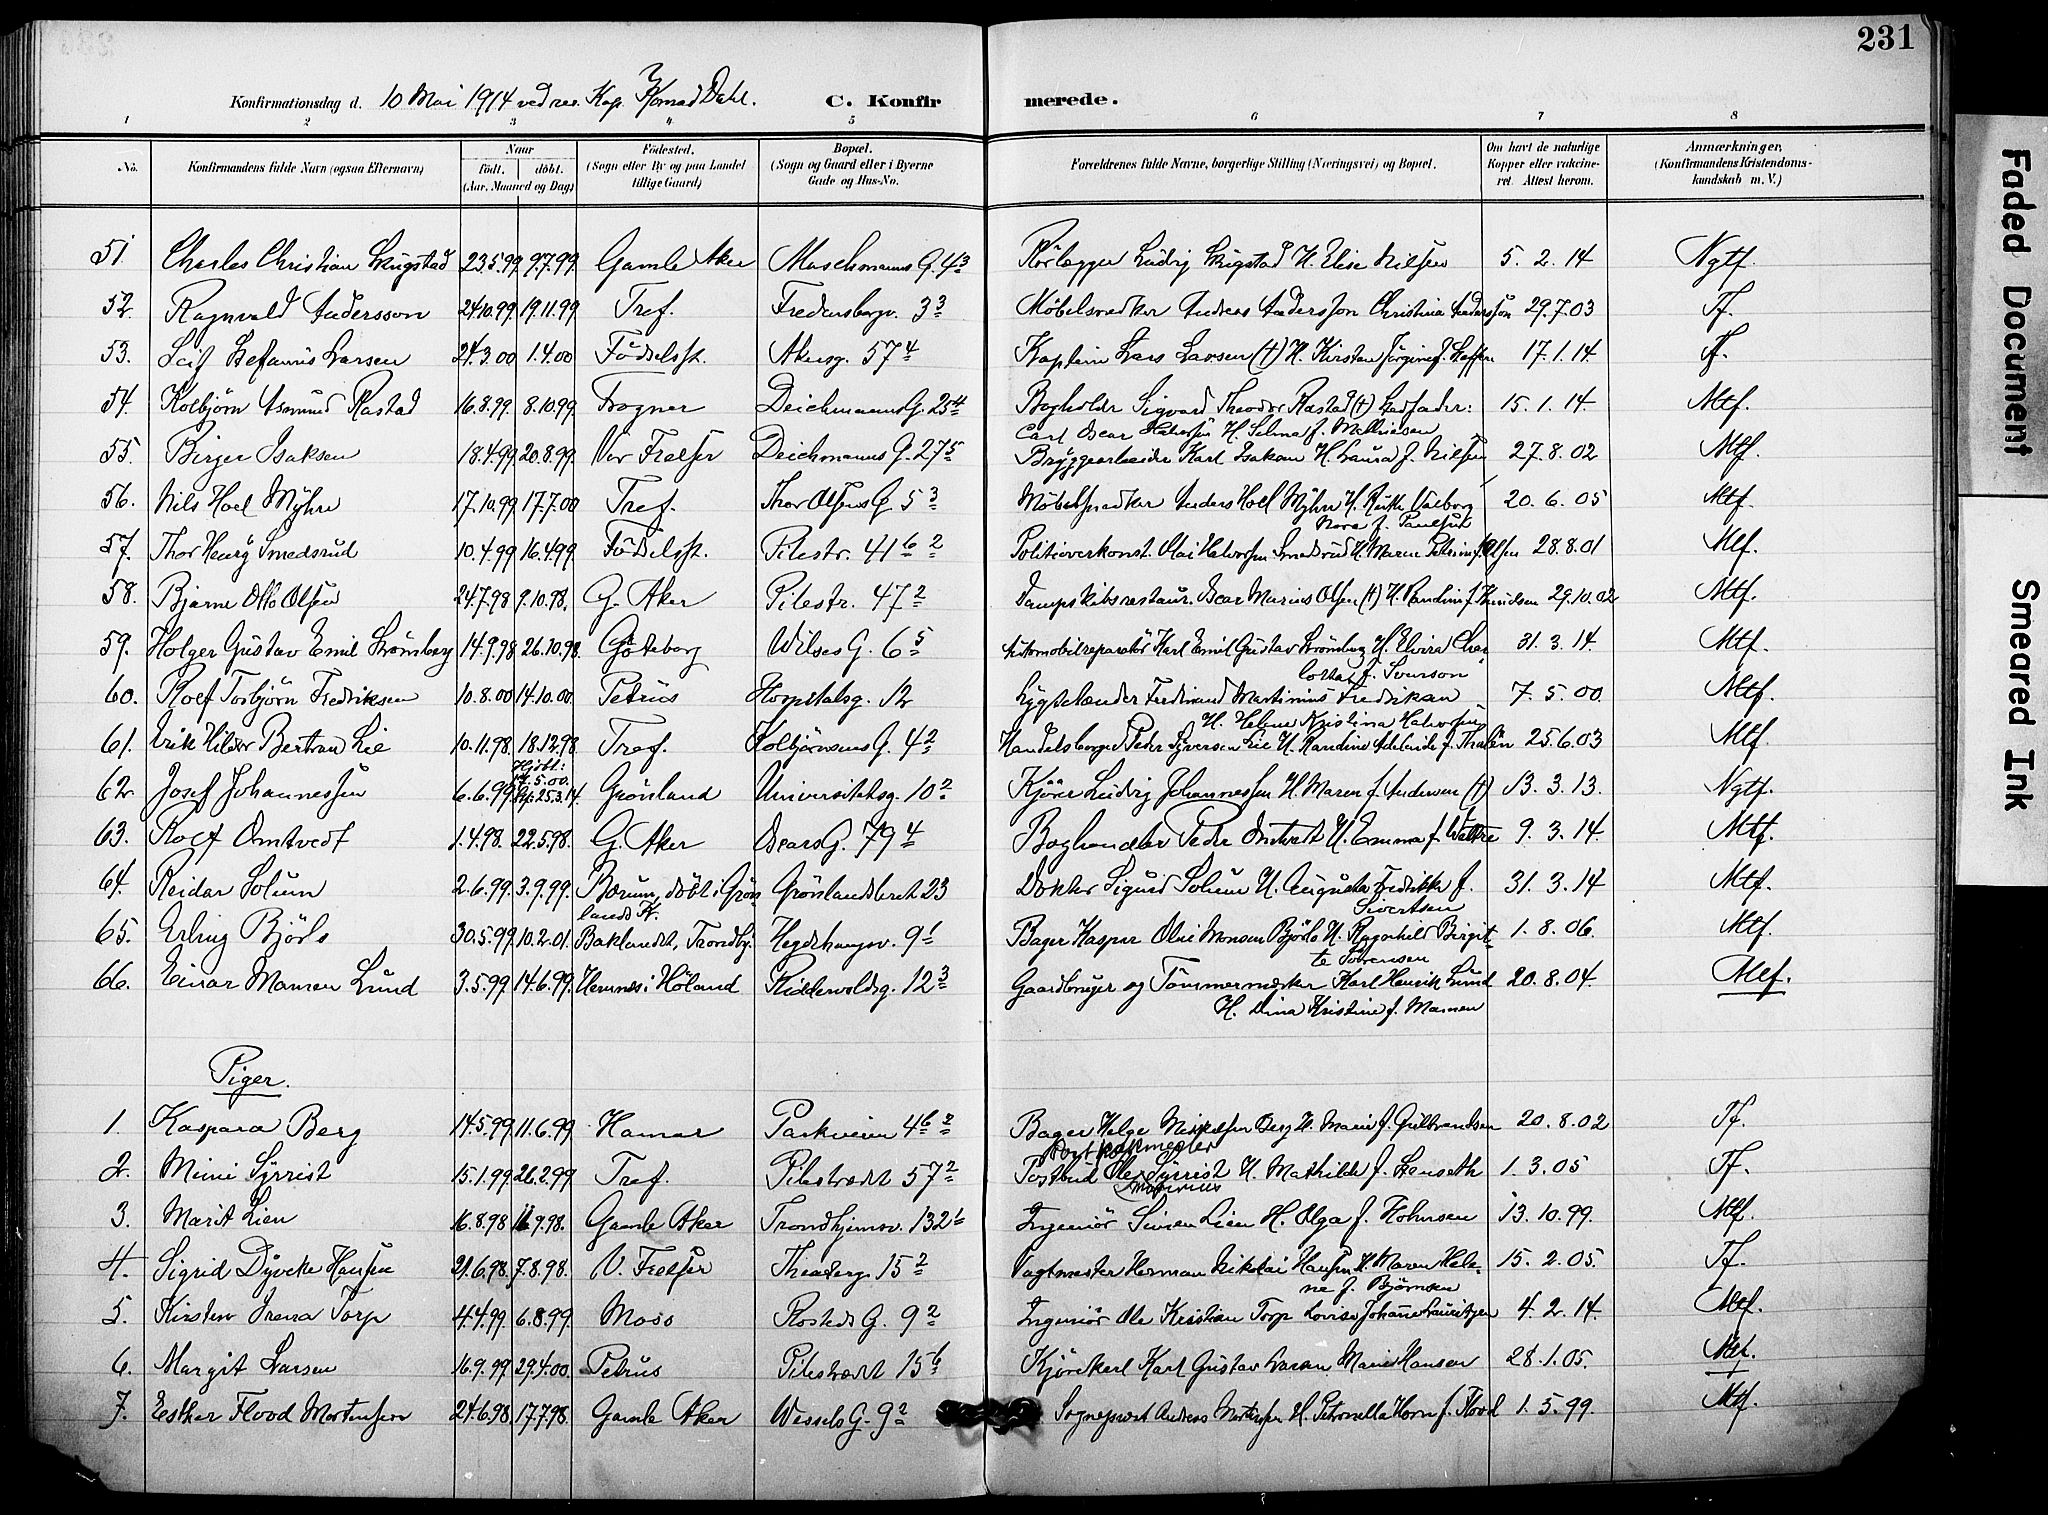 231
Konfirmationsdag d. 10 Mai 1914 ved res. Kap. Konrad Dahl. C. Konfirmerede.
1 2 3 4 5 6 7 8
No. Konfirmandens fulde Navn (ogsaa Efternavn) Naar födt. döbt. (Aar, Maaned og Dag) Födested. (Sogn eller By og paa Landet tillige Gaard) Bopæl. (Sogn og Gaard eller i Byerne Gade og Hus-No. Forældrenes fulde Navne, borgerlige Stilling (Næringsvei) og Bopæl. Om havt de naturlige Kopper eller vaccineret. Attest herom. Anmærkninger, (Konfirmandens Kristendomskundskab m. V.)
51. Charles Christian Skugstad 23.5.99 9.7.99 Gamle Aker Maschmanns G. 4 3 Rørlægger Ludvig Skugstad H. Elise Nilsen 5. 2. 14 Ngtf.
52. Ragnvald Andersson 24.10.99 19.11.99 Tref. Fredensborgv. 3 3 Møbelsnedker Andreas Andersson Christina Andersson 29.7.03 Tf.
53. Leif Stefanus Larsen 24.3.00 1.4.00 Födselsst. Akersg. 57 4 Kaptein Lars Larsen (†) H. Kirsten Jörgine f. Steffen 17.1.14 Tf.
54. Kolbjörn Asmund Rastad 16.8.99 8.10.99 Frogner Deichmanns G. 25 4 Bogholder Sigvard Theodor Rastad (†) Stedfader: 15.1.14. Mtf.
Carl Oscar Halvorsen H. Selma f. Mathiesen
55. Birger Isaksen 18.4.99 20.8.99 Vor Frelser Deichmanns G. 27 5 Bryggearbeider Karl Isaksen H. Laura f. Nilsen 27.8.02 Mtf.
56. Nils Hoel Myhre 17.10.99 17.7.00 Tref. Thor Olsens G. 5 3 Möbelsnedker Anders Hoel Myhre H. Ruth Valborg 20.6.05 Mtf.
Nora f. Paulsen
57. Thor Henry Smedsrud 10.4.99 16.4.99 Födselsst. Pilestr. 41 b 2 Politioverkonst. Olai Halvorsen Smedsrud H. Maren Petrine f. Olsen 28.8.01 Mtf.
58. Bjarne Otto Olsen 24.7.98 9.10.98. G. Aker Pilestr. 47 2 Dampskibsrestaur. Oscar Marius Olsen (†) H. Randine f. Knudsen 29.10.02 Mtf.
59. Holger Gustav Emil Strömberg 14.9.98 26.10.98 Göteborg Wilses G. 6 5 Automobilreparatör Karl Emil Gustav Strömberg H. Elvira Char 31.3.14. Mtf.
lotta f. Svenson
60. Rolf Torbjörn Fredriksen 10.8.00 14.10.00 Petrus Hospitalsg. 12 Lygtetænder Ferdinand Martinius Fredriksen 7.5.00 Mtf.
H. Helene Kristina Halvorsen
61. Erik Hilder Bertram Lie 10.11.98. 18.12.98 Tref. Kolbjörnsens G. 4 2 Handelsborger Peder Syversen Lie H. Randine Adelaide f. Thalén 25.6.03 Mtf.
62. Josef Johannessen 6.6.99 Hjdbt: 14.5.00. 25.3.14 Grönland Universitetsg. 10 2 Kjörer Ludvig Johannessen H. Maren f. Andersen (†) 13.3.13. Ngtf.
63. Rolf Omtvedt 1.4.98. 22.5.98. G. Aker Oscars G. 79 4 Boghandler Peder Omtvedt H. Emma f. Wettre 9.3.14. Mtf.
64. Reidar Solum 2.6.99 3.9.99. Bærum, döbt i Grön Grönlandsleret 23 Doktor Sigurd Solum H. Augusta Fredrikke f. 31.3.14 Mtf.
lands K. Sivertsen
65. Erling Björlo 30.5.99 10.2.01. Baklandet, Trondhj. Hegdehaugsv. 9 1 Bager Kaspar Olai Monsen Björlo H. Ragnhild Birgit- 1.8.06. Mtf.
te Sörensen
66. Einar Mamen Lund 3.5.99 14.6.99 Hemnes i Höland Riddervoldsg. 12 3 Gaardbruger og Tömmermærker Karl Henrik Lund 20.8.04. Mtf.
H. Dina Kristine f. Mamen
Piger.
1. Kaspara Berg 14.5.99 11.6.99. Hamar Parkveien 4 b 2 Bager Helge Mikkelsen Berg H. Marie f. Gulbrandsen 20.8.02 Tf.
2. Mimi Syrrist 15.1.99 26.2.99 Tref. Pilestrædet 57 2 Postbud Ole Syrrist H. Mathilde f. Stenseth 1.3.05 Tf.
3. Marit Lien 16.8.98 11.9.98. Gamle Aker Trondhjemsv. 132 1 Ingeniör Simen Lien H. Olga f. Holmsen 13.10.99. Mtf.
4. Sigrid Dyveke Hansen 21.6.98. 7.8.98. V. Frelser Theaterg. 15 2 Vagtmester Herman Nikolai Hansen H. Maren Hele- 15.2.05. Tf.
ne f. Björnsen
5. Kirsten Irena Torp 4.4.99 6.8.99 Moss Rosteds G. 9 2 Ingeniör Ole Kristian Torp Lovise Johanne Lauritzen 4.2.14. Mtf.
6. Margit Larsen 16.9.99 29.4.00. Petrus Pilestrædet 15 b Kjörekarl Karl Gustav Larsen Marie Hansen 28.1.05. Mtf.
7. Esther Flood Mortensen 24.6.98 17.7.98. Gamle Aker Wessels G. 9 2 Sogneprest Andreas Mortensen H. Petronella Horn f. Flood 1.5.99. Mtf.
Faded Document
Smeared Ink